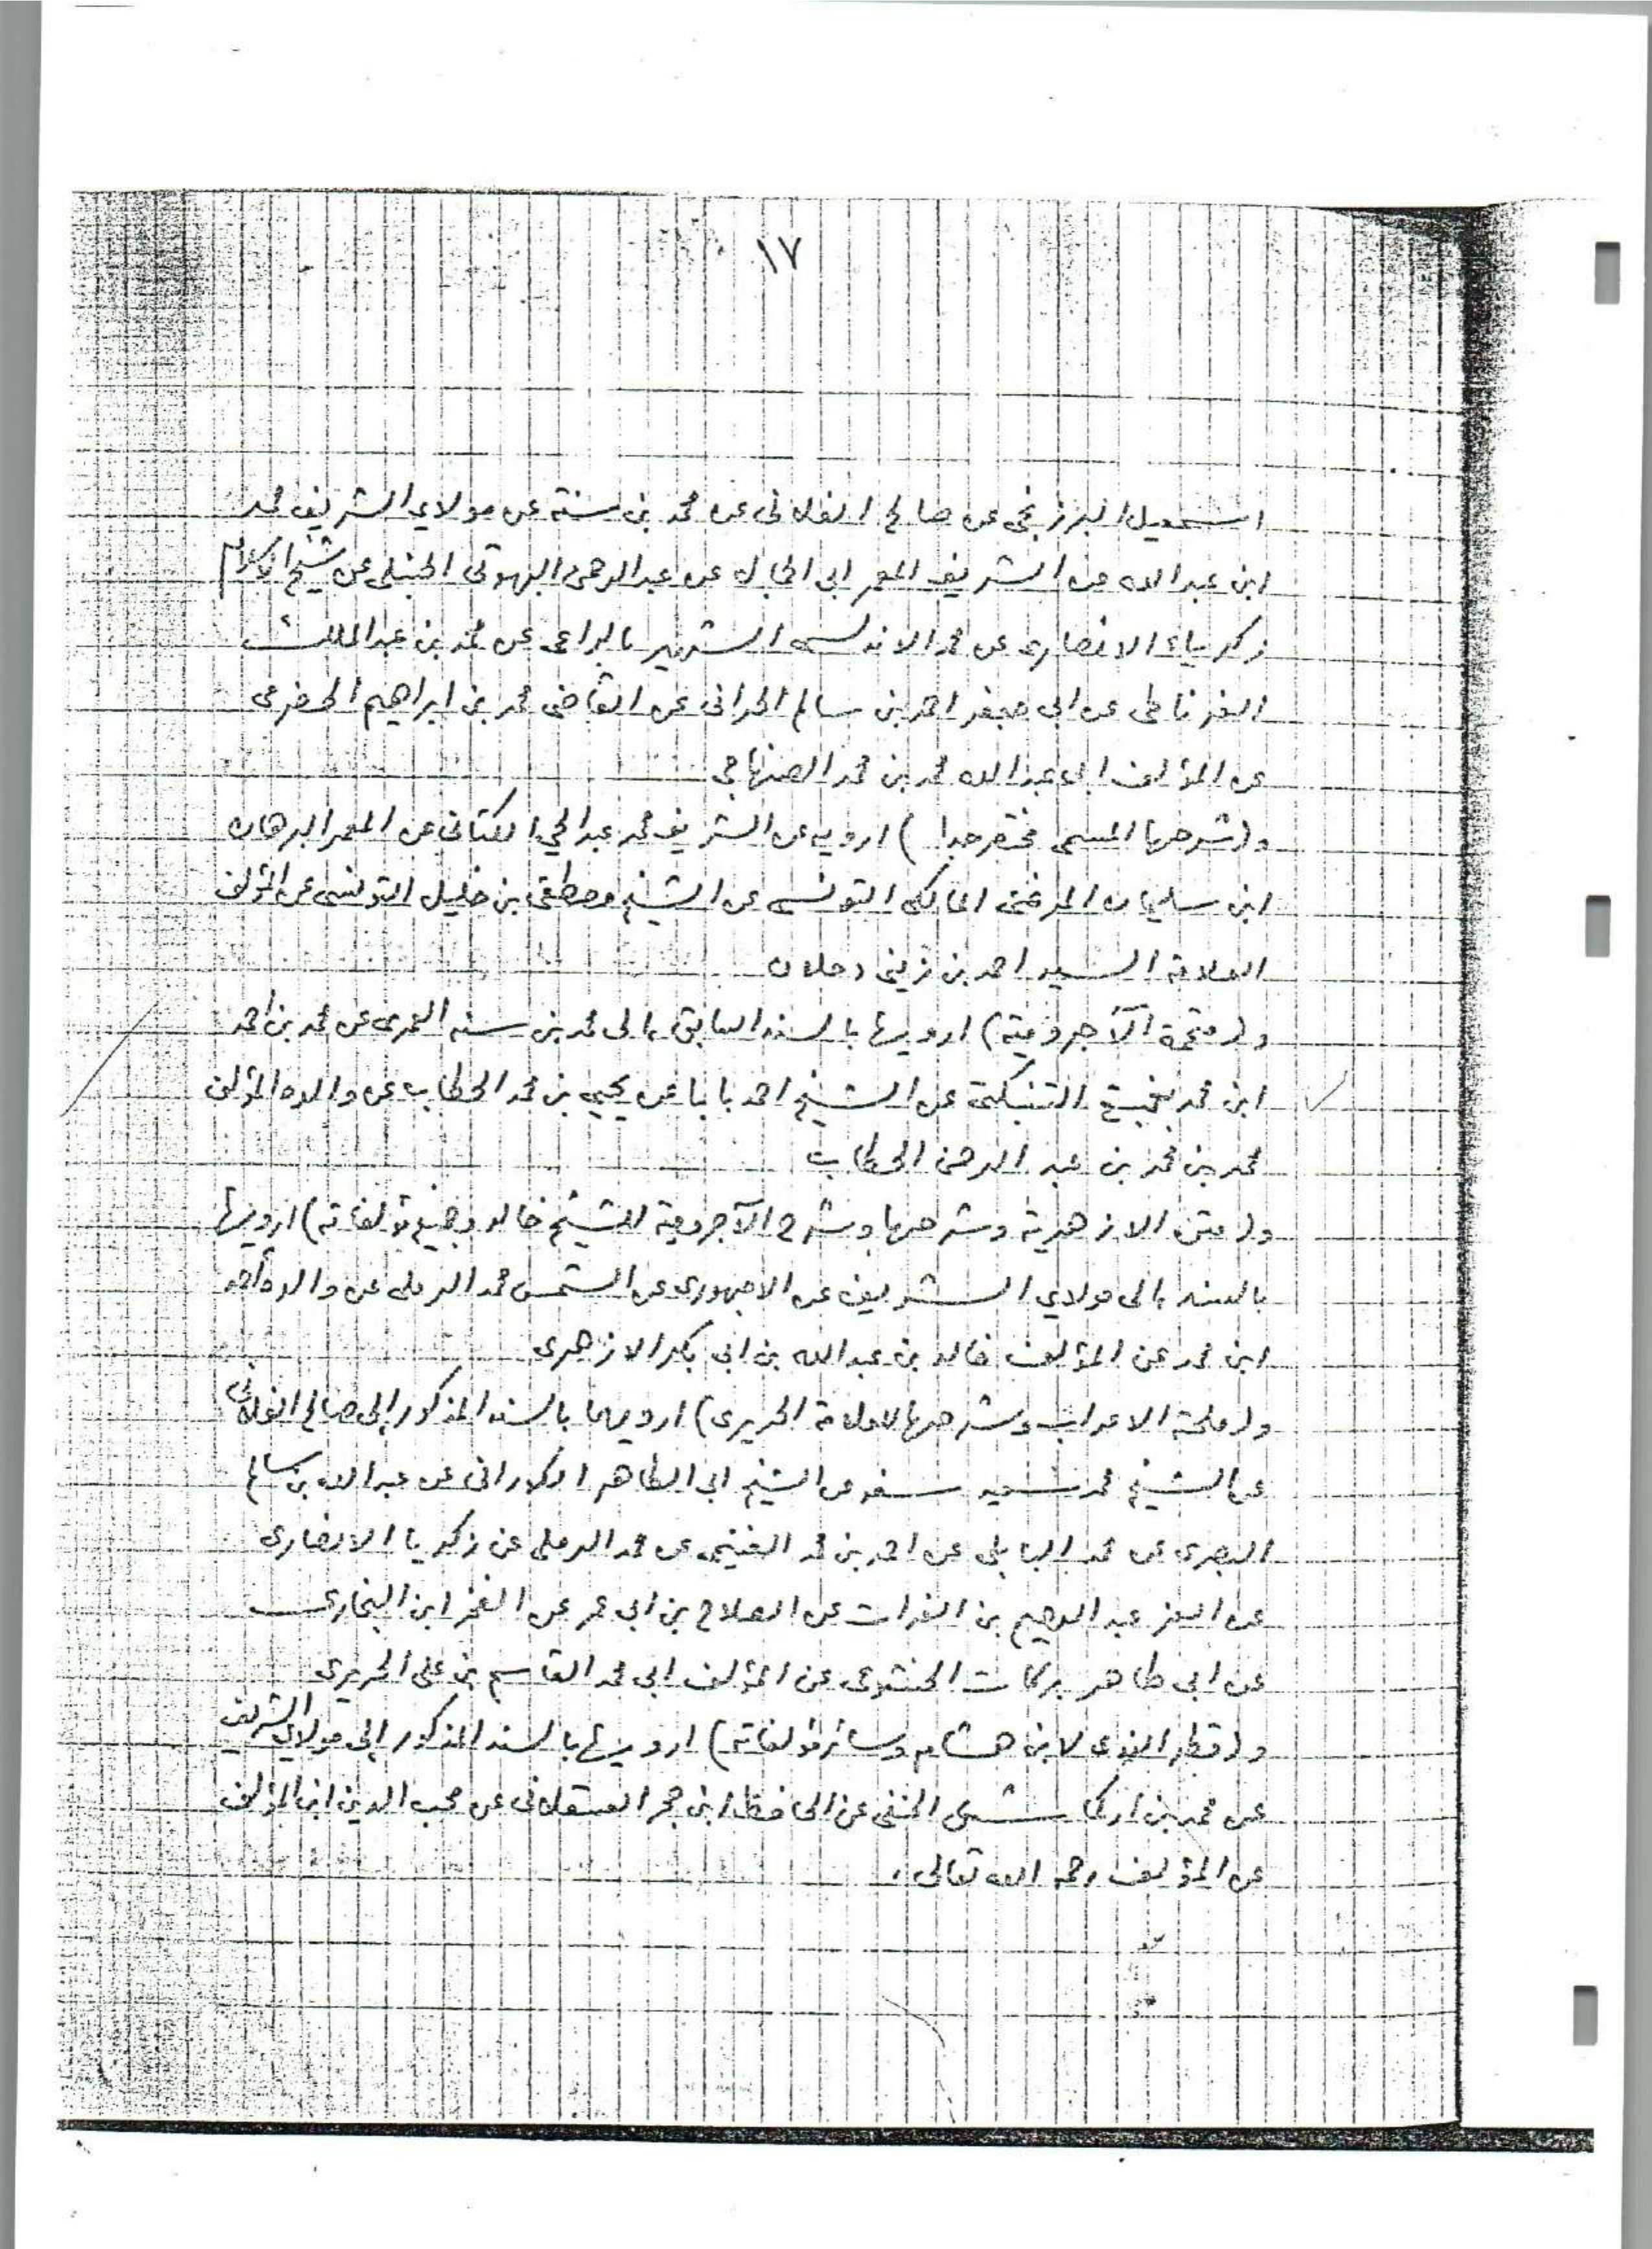 ١٧
اسمعيل البرزنجى عن صالح الفلانى عن محمد بن سنة عن مولاى الشريف محمد
ابن عبد الله عن الشريف المعمر ابى الجمال عن عبد الرحمن البهوتى الحنبلى عن شيخ الاسلام
زكرياء الانصارى عن محمد الاندلسى الشهير بالراعى عن محمد بن عبد الملك
الغرناطى عن ابى جعفر احمد بن سالم الجذامى عن القاضى محمد بن ابراهيم الحضرمى
عن المؤلف ابى عبد الله محمد بن محمد الصنهاجى
و(شرحها المسمى مختصر جدا) ارويه عن الشريف محمد عبد الحي الكتانى عن المعمر البرهان
ابن سليمان المرغنى المالكى التونسى عن الشيخ مصطفى بن خليل التونسى عن المؤلف
العلامة السيد احمد بن زينى دحلان
و(متممة الآجرومية) ارويها بالسند السابق الى محمد بن سنه العمرى عن محمد بن احمد
ابن محمد بغيغ التنبكتى عن الشيخ احمد بابا عن يحيى بن محمد الحطاب عن والده المؤلف
محمد بن محمد بن عبد الرحمن الحطاب
و(متن الازهرية وشرحها وشرح الآجرومية للشيخ خالد وجميع مؤلفاته) ارويها
بالسند الى مولاي الشريف عن الاجهورى عن الشمس محمد الرملى عن والده أحمد
ابن محمد عن المؤلف خالد بن عبد الله بن ابى بكر الازهرى
و(ملحة الاعراب وشرحها للعلامة الحريرى) ارويهما بالسند المذكور إلى صالح الفلانى
عن الشيخ محمد سعيد سفر عن الشيخ ابى الطاهر الكورانى عن عبد الله بن سالم
البصرى عن محمد البابلى عن احمد بن محمد الغنيمى عن محمد الرملى عن زكريا الانصارى
عن العز عبد الرحيم بن الفرات عن الصلاح بن ابى عمر عن الفخر ابن البخارى
عن ابى طاهر بركات الخشوعى عن المؤلف ابى محمد القاسم بن على الحريرى
و(قطر الندى لابن هشام وسائر مؤلفاته) ارويها بالسند المذكور إلى مولاي الشريف
عن محمد بن اركماش الحنفى عن الحافظ ابن حجر العسقلانى عن محب الدين ابن المؤلف
عن المؤلف رحمه الله تعالى.